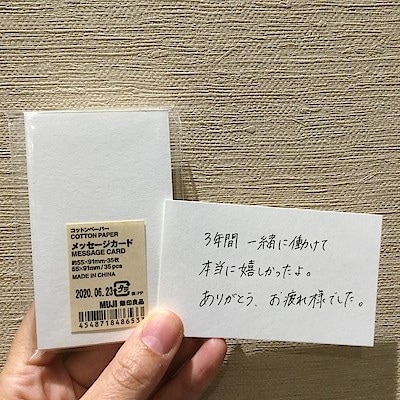 コットンペーパー
COTTON PAPER
メッセージカード
MESSAGE CARD
約55×91mm・35枚
55×91mm/35 pcs
MADE IN CHINA
2020.06.23
MUJI 無印良品
4548718486537
3年間 一緒に働けて
本当に嬉しかったよ。
ありがとう、お疲れ様でした。